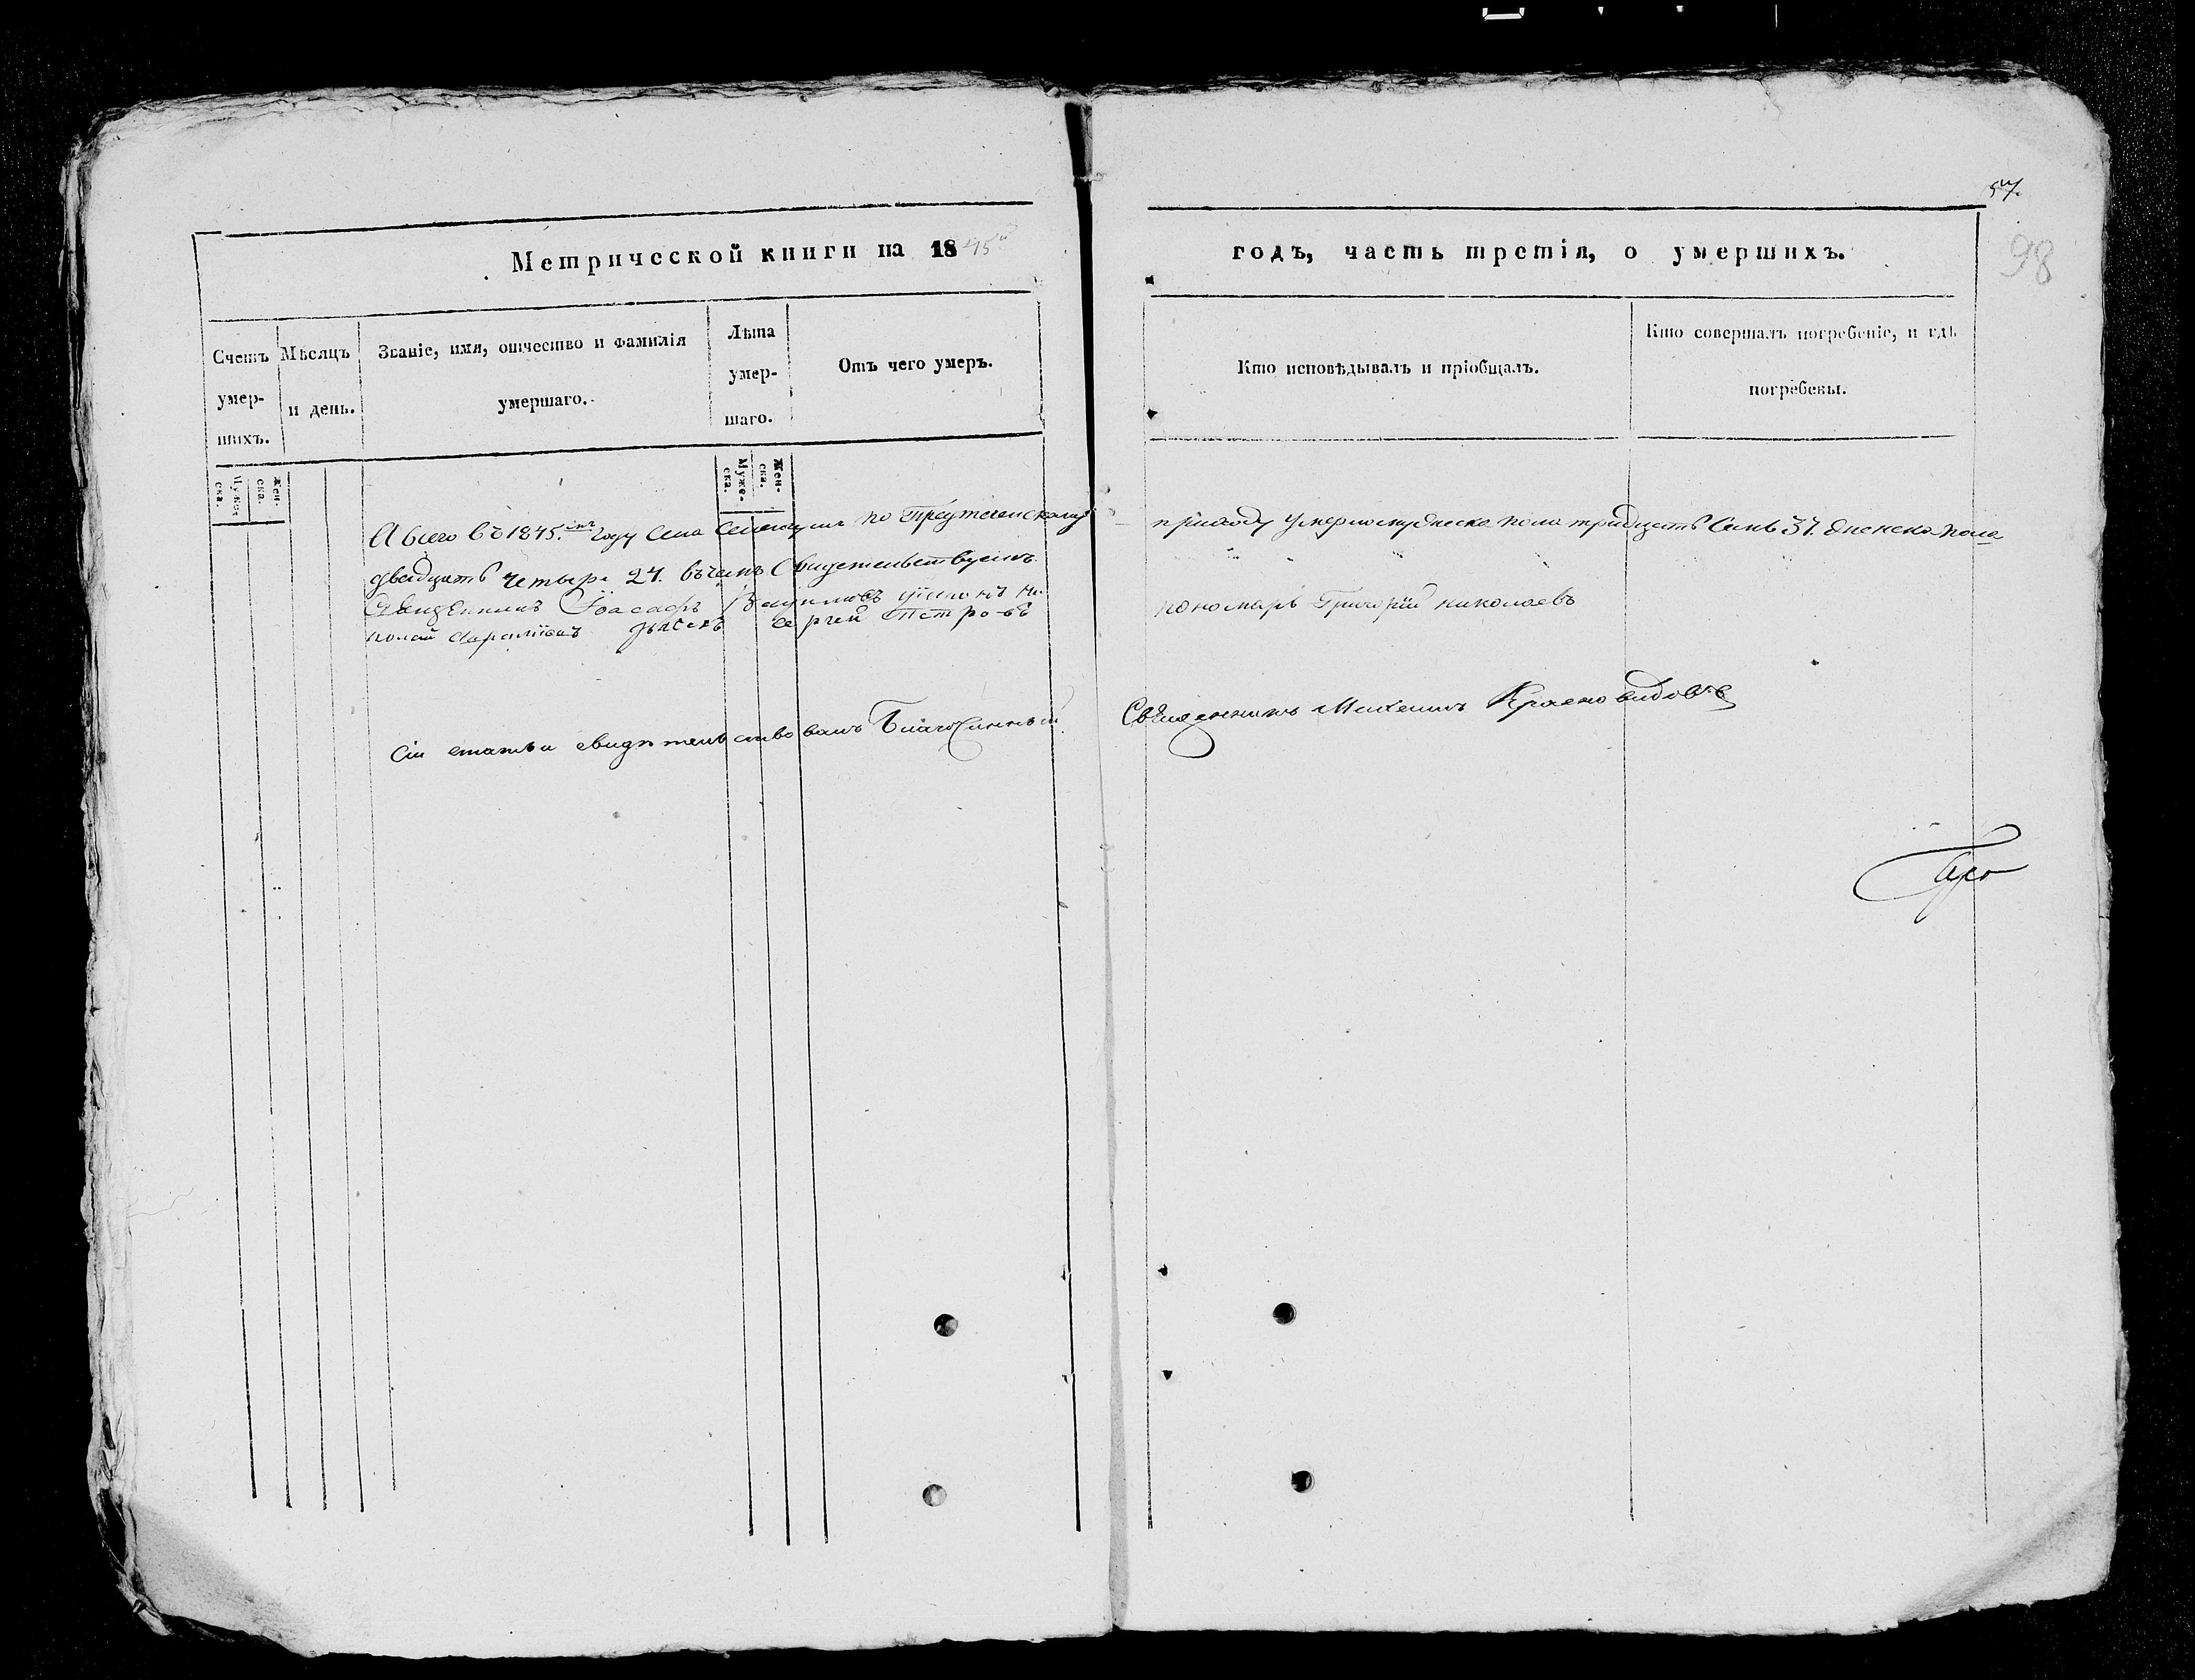 57.
98
Метрической книги на 1845й
годъ, часть третія, о умершихъ.
Счетъ умер-шихъ.
Мѣсяцъ и день.
Званіе, имя, отчество и фамилія умершаго.
Лѣта умер-шаго.
Отъ чего умеръ.
Кто исповѣдывалъ и пріобщалъ.
Кто совершалъ погребеніе, и гдѣ погребены.
Мужес-ка. Жен-ска.
Муже-ска. Жен-ска.
А всего въ 1845.мъ году Села по
приходу умерло мужеска пола тридцать семь 37. а женска пола
двадцать четыре 24. въ чемъ Свидетельствуемъ
Священникъ Іоасафъ діаконъ Ни-
колай дьячекъ Сергей Петровъ
пономарь Григорій николаевъ
Сіи статьи свидѣтельствовалъ Благочинный
Священникъ Михаилъ Красновидовъ